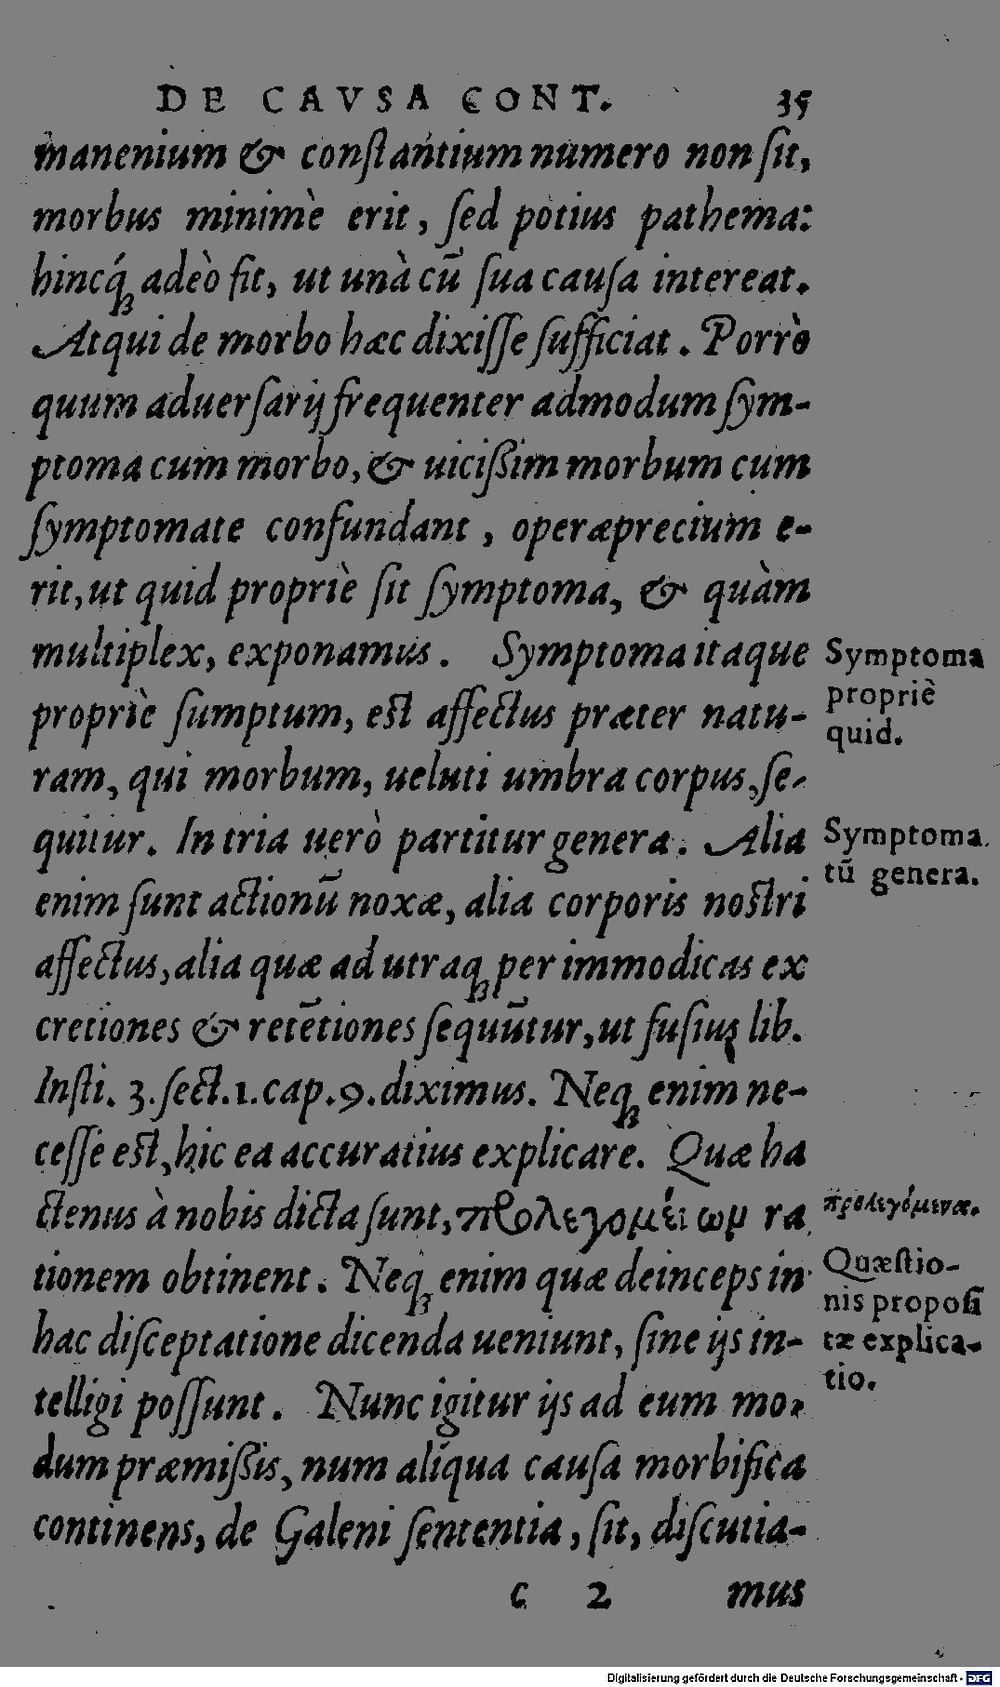 DE CAVSA CONT. 35
manenium & constantium numero non sit,
morbus minimè erit, sed potius pathema:
hincq́ꝫ adeò fit, ut unà cū sua causa intereat.
Atqui de morbo hæc dixisse sufficiat. Porrò
quum aduersarij frequenter admodum sym-
ptoma cum morbo, & uicißim morbum cum
symptomate confundant, operæprecium e-
rit, ut quid propriè sit symptoma, & quàm
multiplex, exponamus. Symptoma itaque
propriè sumptum, est affectus præter natu-
ram, qui morbum, ueluti umbra corpus, se-
quitur. In tria uerò partitur genera. Alia
enim sunt actionū noxæ, alia corporis nostri
affectus, alia quæ ad utraqꝫ per immodicas ex
cretiones & retētiones sequūtur, ut fusius lib.
Insti. 3. sect. 1. cap. 9. diximus. Neqꝫ enim ne-
cesse est, hic ea accuratius explicare. Quæ ha
ctenus à nobis dicta sunt, προλεγομένωμ ra
tionem obtinent. Neqꝫ enim quæ deinceps in
hac disceptatione dicenda ueniunt, sine ijs in-
telligi possunt. Nunc igitur ijs ad eum mo-
dum præmißis, num aliqua causa morbifica
continens, de Galeni sententia, sit, discutia-
c 2 mus
Symptoma
propriè
quid.
Symptoma.
tū genera.
προλεγόμενα.
Quæstio-
nis proposi
tæ explica-
tio.
Digitalisierung gefördert durch die Deutsche Forschungsgemeinschaft - DFG